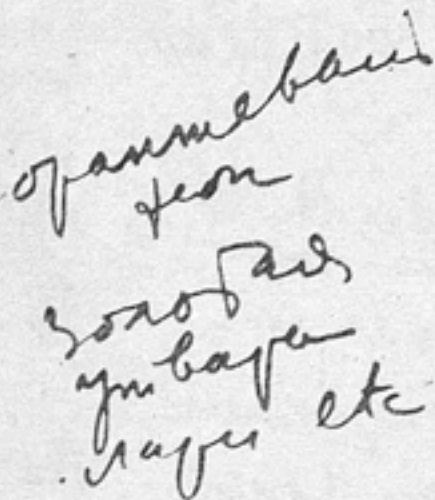 оранжевый
фон
золотая
утварь
лари etc